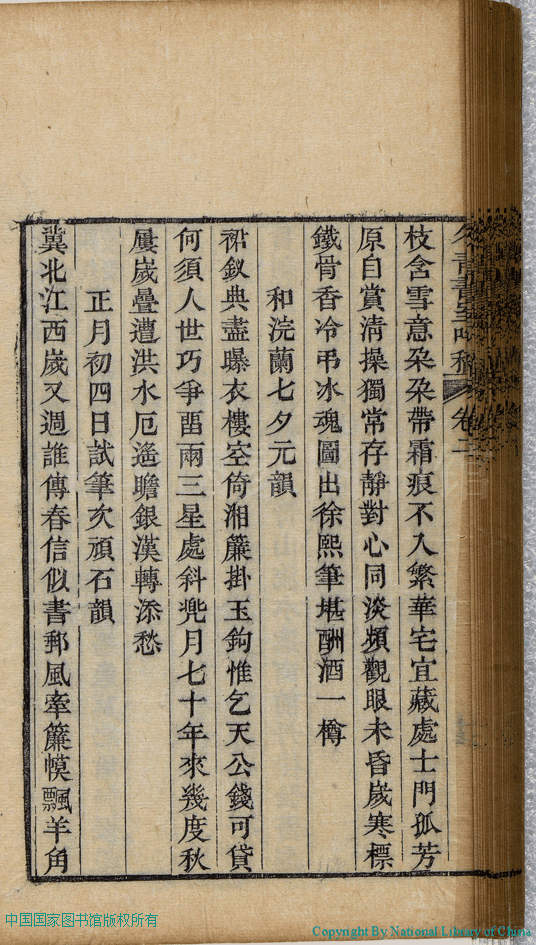 枝含雪意朶朶帶霜痕不入繁華宅宜藏處士門孤芳
原自賞淸操獨常存靜對心同淡頻觀眼未昏歲寒標
鐵骨香冷弔冰魂圖出徐熙筆堪酬酒一樽
和浣蘭七夕元韻
裙釵典盡曝衣樓空倚湘簾掛玉鉤惟乞天公錢可貸
何須人世巧爭留兩三星處斜兠月七十年來幾度秋
屢歲疊遭洪水厄遙瞻銀漢轉添愁
正月初四日試筆次頑石韻
冀北江西歲又週誰傳春信似書郵風牽簾幙飄羊角
卷二
中国国家图书馆版权所有
Copyright By National Library of China